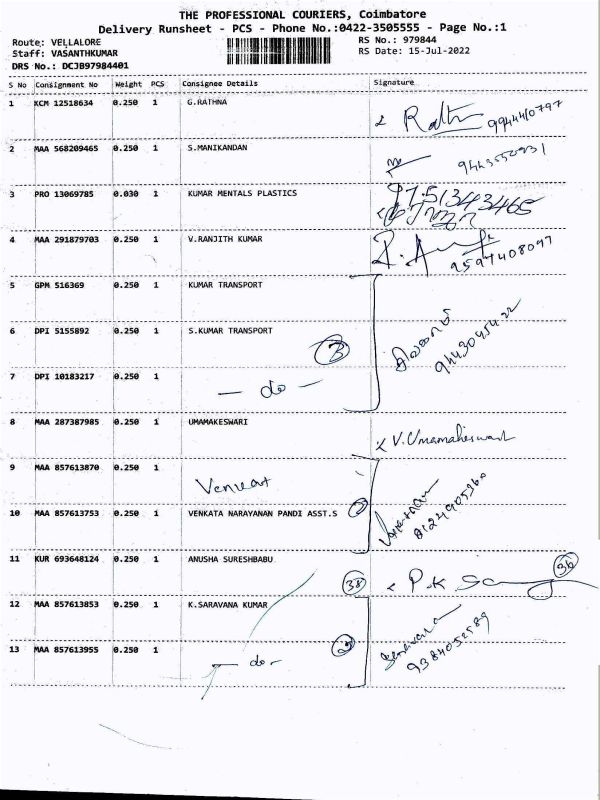 THE PROFESSIONAL COURIERS, Coimbatore
Delivery Runsheet - PCS - Phone No.:0422-3505555 - Page No.:1
Route: VELLALORE RS No.: 979844
Staff: VASANTHKUMAR RS Date: 15-Jul-2022
DRS No.: DCJB97984401
S No Consignment No Weight PCS Consignee Details Signature
1 KCM 12518634 0.250 1 G.RATHNA Rath 9944410797
2 MAA 568209465 0.250 1 S.MANIKANDAN
3 PRO 13069785 0.030 1 KUMAR MENTALS PLASTICS
4 MAA 291879703 0.250 1 V.RANJITH KUMAR 9597408097
5 GPM 516369 KUMAR TRANSPORT 0.250 1
6 DPI 5155892 0.250 1 S.KUMAR TRANSPORT 3 9443045422
7 DPI 10183217 0.250 1 - do -
8 MAA 287387985 0.250 1 UMAMAKESWARI V. Umamaheswari
9 MAA 857613870 0.250 1 Venkat
10 MAA 857613753 0.250 1 VENKATA NARAYANAN PANDI ASST.S 8124905360
11 KUR 693648124 0.250 1 ANUSHA SURESHBABU 38 P.K 36
12 MAA 857613853 0.250 1 K.SARAVANA KUMAR Saravana
13 MAA 857613955 0.250 1 - do - 2 9384052589